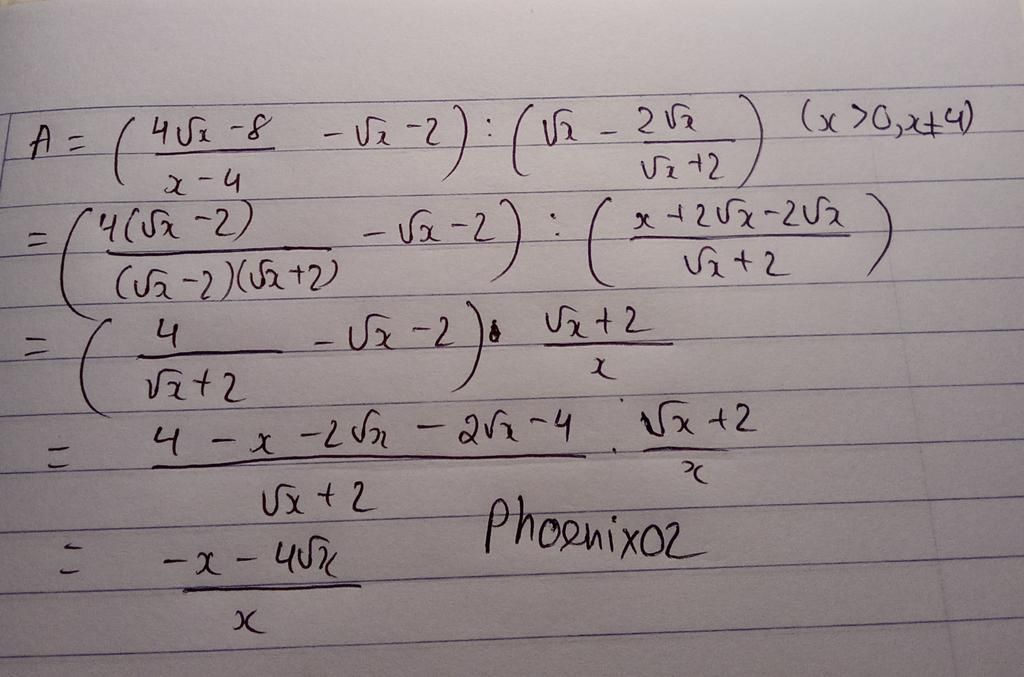 A = ( (4√x − 8)/(x − 4) − √x − 2 ) : ( √x − 2√x/(√x + 2) ) (x > 0, x ≠ 4)
= ( 4(√x − 2)/((√x − 2)(√x + 2)) − √x − 2 ) : ( (x + 2√x − 2√x)/(√x + 2) )
= ( 4/(√x + 2) − √x − 2 ) · (√x + 2)/x
= (4 − x − 2√x − 2√x − 4)/(√x + 2) · (√x + 2)/x
= (−x − 4√x)/x
Phoenix02